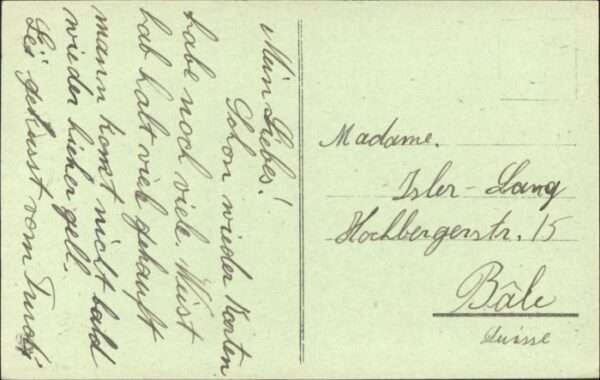 Mein Liebes!
Schon wieder Karten
habe noch viele. Weist
hab halt viel gekauft
mann komt nicht bald
wieder hieher gell.
Sei geküsst vom
Madame.
Isler-Lang
Hochbergerstr. 15
Bâle
Suisse